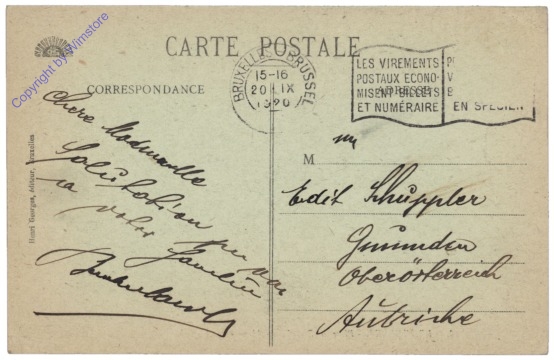 Copyright by Wimstore
CARTE POSTALE
CORRESPONDANCE
BRUXELLES BRUSSEL
15-16
20 IX
1920
LES VIREMENTS
POSTAUX ECONO-
MISENT BILLETS
ET NUMÉRAIRE
ADRESSE
P
V
B
EN SPECIEN
Henri Georges, éditeur, Bruxelles
Chere Mademoiselle
Salutation
a votre famille
M
Edit Schuppler
Gmunden
Oberösterreich
Autriche